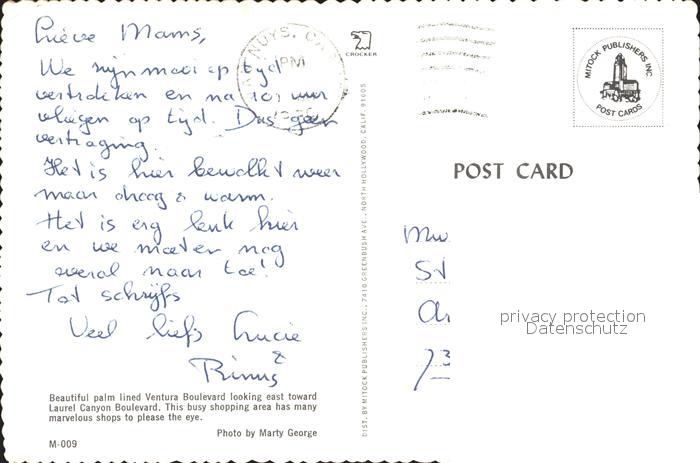 Lieve Mams,
We zijn mooi op tijd
vertrokken en na 10½ uur
vliegen op tijd. Dus geen
vertraging.
Het is hier bewolkt weer
maar droog & warm.
Het is erg leuk hier
en we moeten nog
overal naar toe!
Tot schrijfs
Veel liefs Lucie
&
Rinus
Beautiful palm lined Ventura Boulevard looking east toward
Laurel Canyon Boulevard. This busy shopping area has many
marvelous shops to please the eye.
Photo by Marty George
M-009
NUYS, CA
PM
CROCKER
DIST. BY MITOCK PUBLISHERS INC., 7410 GREENBUSH AVE., NORTH HOLLYWOOD, CALIF. 91605
MITOCK PUBLISHERS INC
POST CARDS
POST CARD
Mw.
St
73
privacy protection
Datenschutz